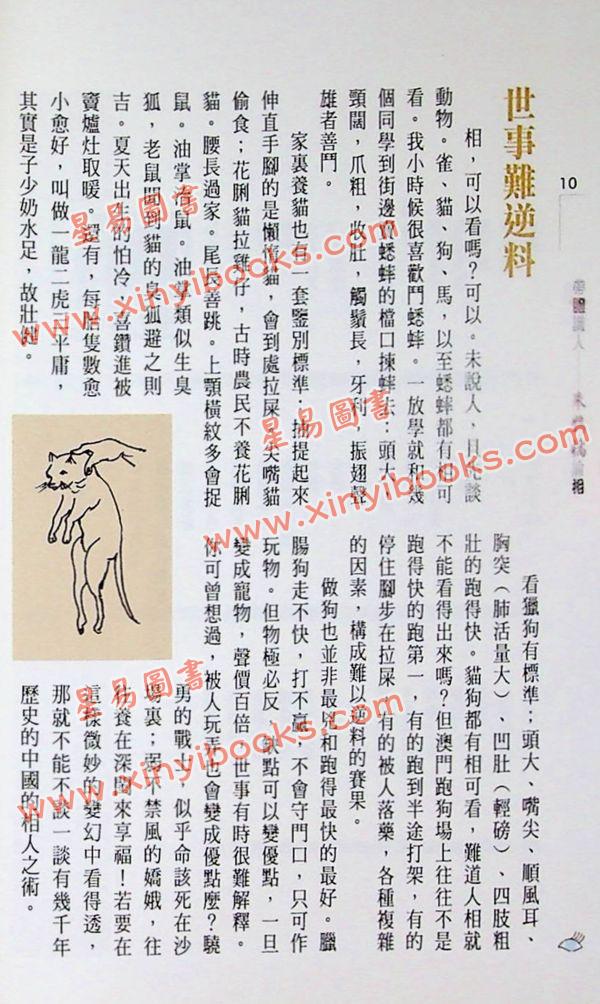 10
世事難逆料
相,可以看嗎?可以。未說人,且先談
動物。雀、貓、狗、馬,以至蟋蟀都有相可
看。我小時候很喜歡鬥蟋蟀。一放學就和幾
個同學到街邊賣蟋蟀的檔口揀蟀去:頭大、
頸闊,爪粗,收肚,觸鬚長,牙利,振翅聲
雄者善鬥。
家裏養貓也有一套鑒別標準:捕提起來
伸直手腳的是懶惰貓,會到處拉屎;尖嘴貓
偷食;花脷貓拉雞仔,古時農民不養花脷
貓。腰長過家。尾長善跳。上顎橫紋多會捉
鼠。油掌者鼠。油掌類似生臭
狐,老鼠聞到貓的臭狐避之則
吉。夏天出生的怕冷,喜鑽進被
竇爐灶取暖。還有,每胎隻數愈
小愈好,叫做一龍二虎三平庸,
其實是子少奶水足,故壯
看獵狗有標準:頭大、嘴尖、順風耳、
胸突(肺活量大)、凹肚(輕磅)、四肢粗
壯的跑得快。貓狗都有相可看,難道人相就
不能看得出來嗎?但澳門跑狗場上往往不是
跑得快的跑第一,有的跑到半途打架,有的
停住腳步在拉屎,有的被人落藥,各種複雜
的因素,構成難以逆料的賽果。
做狗也並非最兇和跑得最快的最好。臘
腸狗走不快,打不贏,不會守門口,只可作
玩物。但物極必反,缺點可以變優點,一旦
變成寵物,聲價百倍。世事有時很難解釋。
你可曾想過,被人玩弄也會變成優點麼?驍
勇的戰士,似乎命該死在沙
場裏;弱不禁風的嬌娥,往
往養在深閨來享福!若要在
這樣微妙的變幻中看得透,
那就不能不談一談有幾千年
歷史的中國的相人之術。
星易圖書
www.xinyibooks.com
星易圖書
www.xinyibooks.com
星易圖書
www.xinyibooks.com
星易圖書
www.xinyibooks.com